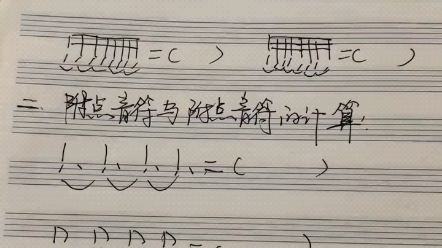 =( ) =( )
二. 附点音符与附点音符的计算:
=( )
=( )